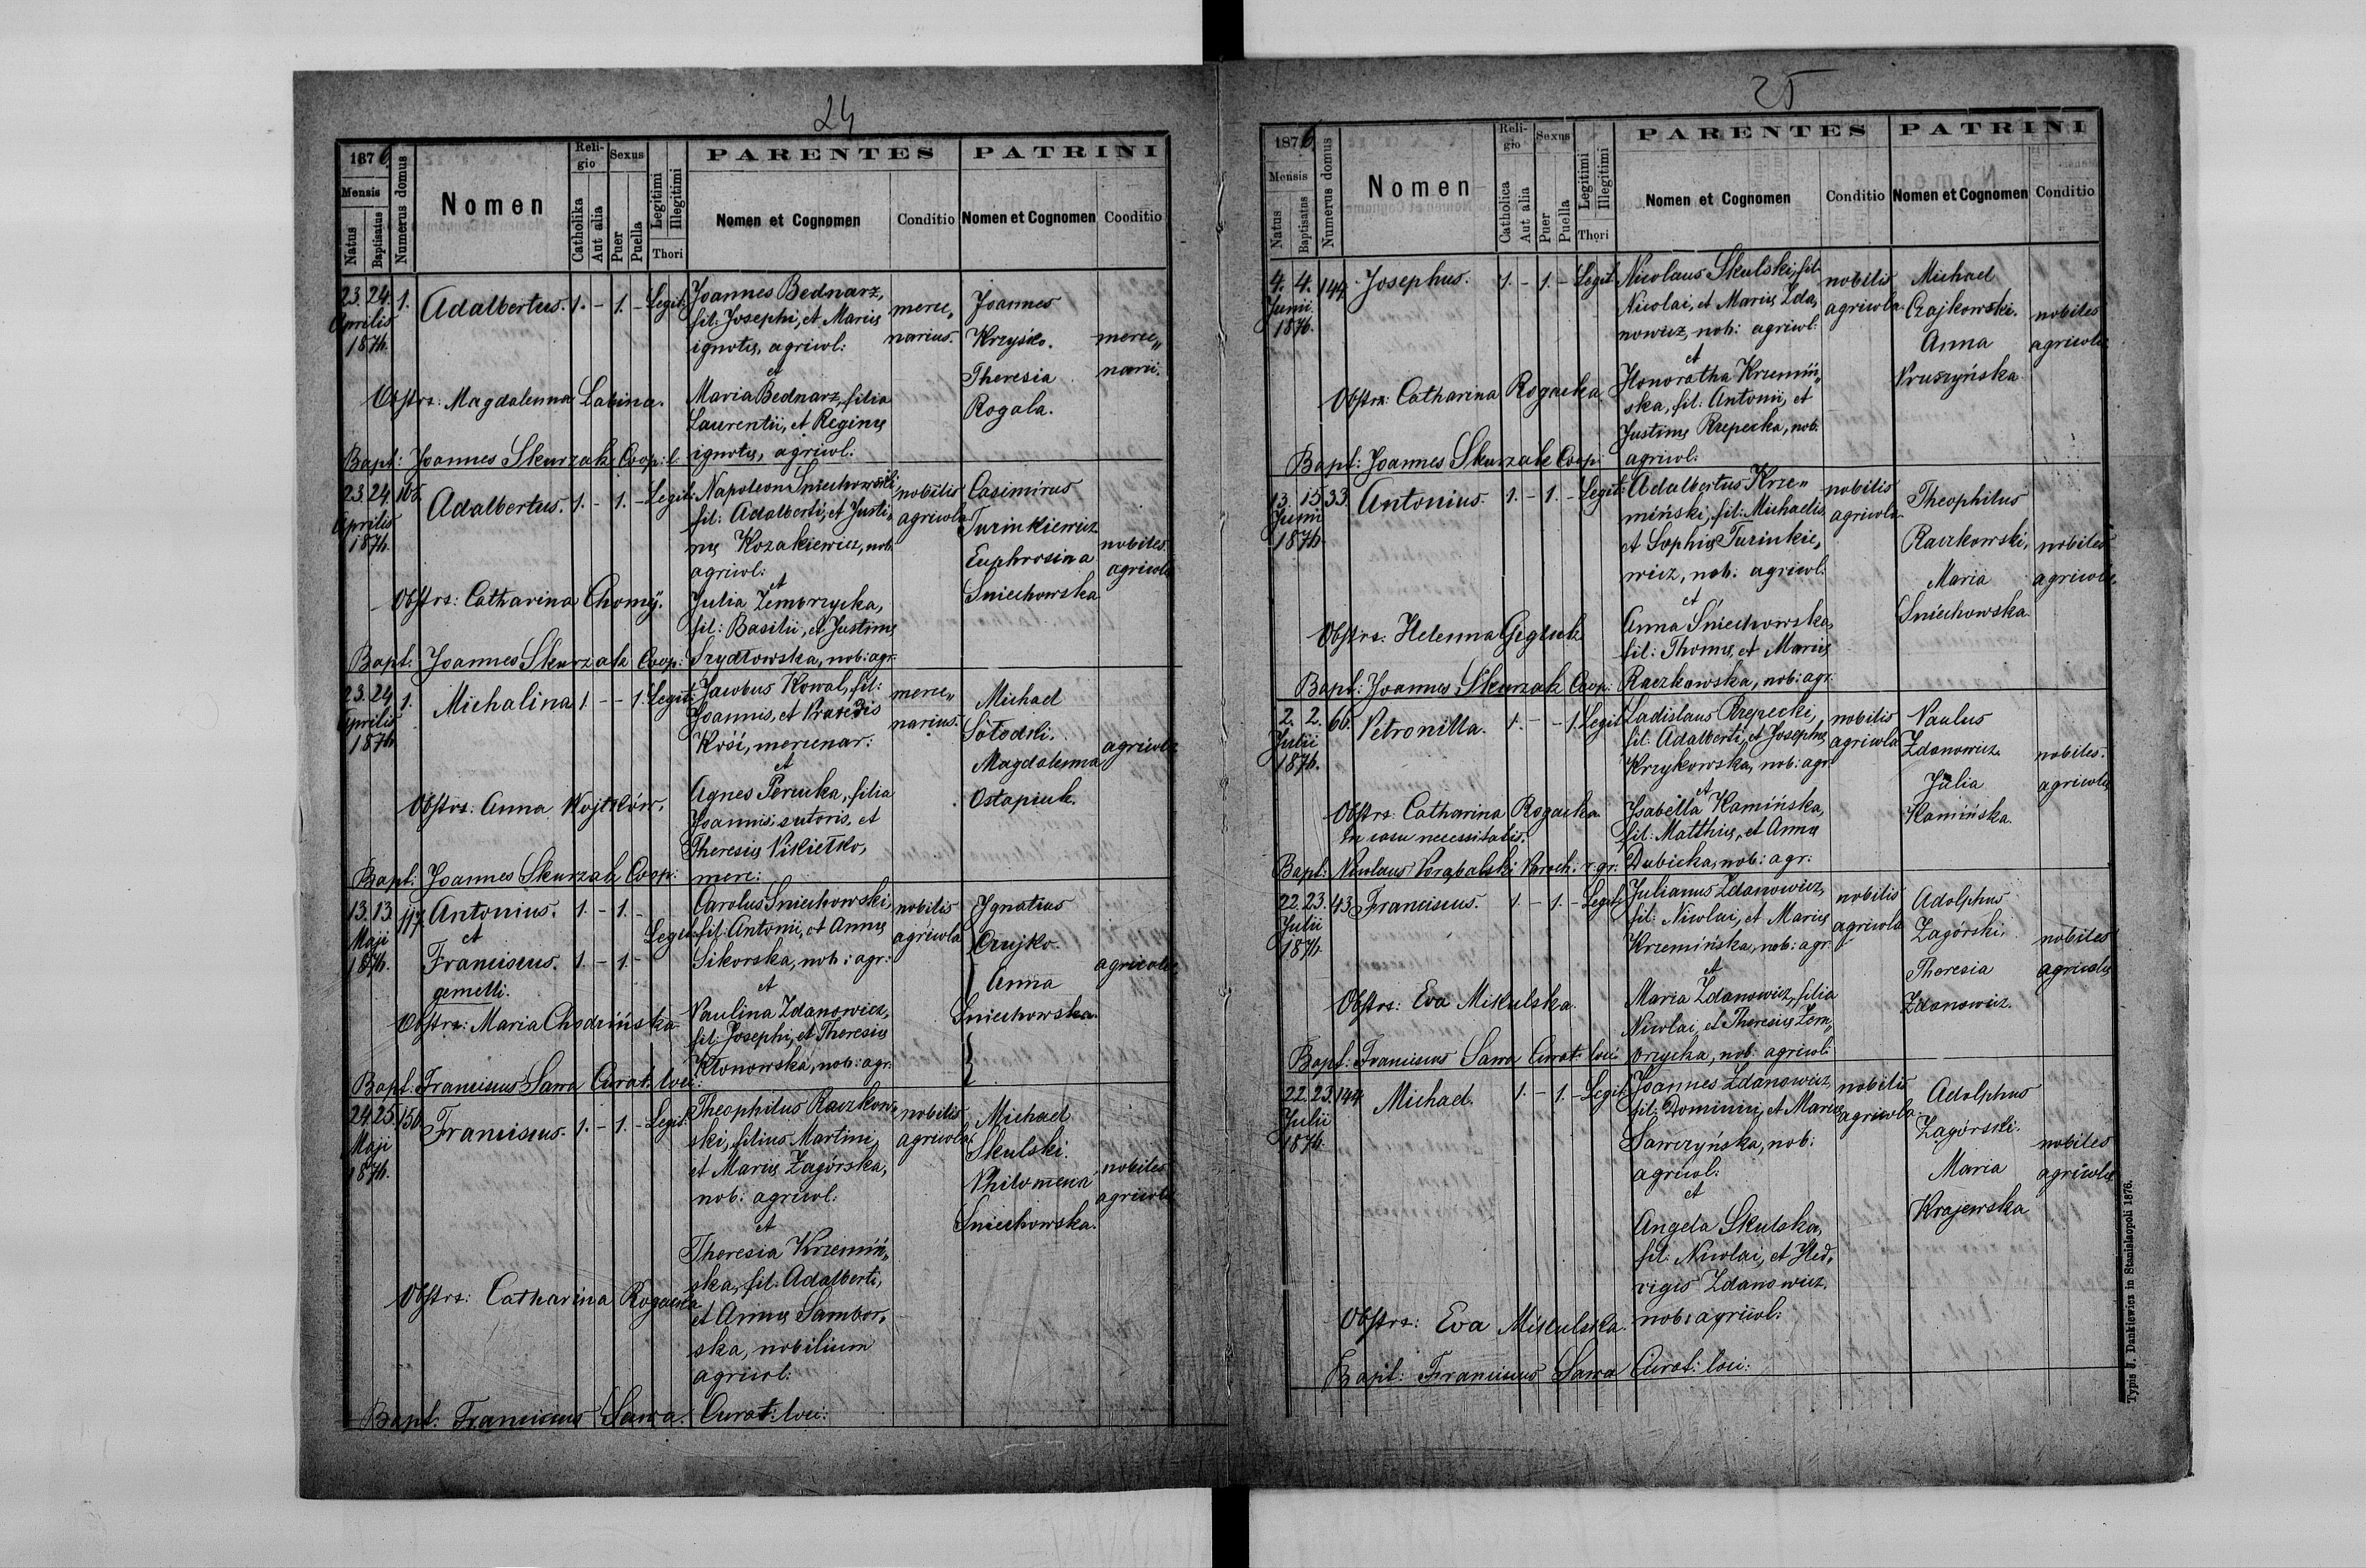 24
1876
Mensis
Natus
Baptisatus
Numerus domus
Nomen
Religio
Catholika
Aut alia
Sexus
Puer
Puella
Legitimi
Illegitimi
Thori
PARENTES
Nomen et Cognomen
Conditio
PATRINI
Nomen et Cognomen
Cooditio
23. 24. 1. Adalbertus. 1. - 1. - Legit:
Aprilis
1876.
Joannes Bednarz,
fil: Josephi, et Mariæ
ignotæ, agricol:
et
Maria Bednarz, filia
Laurentii, et Reginæ
ignotæ, agricol:
merce„
narius.
Joannes
Krzyśko.
Theresia
Rogala.
merce„
narii.
Obstrx: Magdalenna Labina.
Bapt: Joannes Skurzak Coop:
23. 24. 105. Adalbertus. 1. - 1. - Legit:
Aprilis
1876.
Napoleon Sniechowski,
fil: Adalberti, et Justi„
næ Kozakiewicz, nob:
agricol:
et
Julia Zembrzycka,
fil: Basilii, et Justinæ
Szydłowska, nob: agr:
nobilis
agricola.
Casimirus
Turinkiewicz
Euphrosina
Sniechowska
nobiles
agricolæ
Obstrx: Catharina Chomÿ.
Bapt: Joannes Skurzak Coop:
23. 24. 1. Michalina 1. - - 1. Legit:
Aprilis
1876.
Jacobus Kowal, fil:
Joannis, et Praxedis
Kość, mercenar:
et
Agnes Perucka, filia
Joannis sutoris, et
Theresiæ Pikietko,
merc:
merce„
narius.
Michael
Sołodki.
Magdalenna
Ostapiuk.
agricolæ
Obstrx: Anna Wojtków.
Bapt: Joannes Skurzak Coop:
13. 13. 117. Antonius. 1. - 1. -
Maji
1876.
et
Franciscus. 1. - 1. -
gemelli.
Legit:
Carolus Sniechowski,
fil: Antonii, et Annæ
Sikorska, nob: agr:
et
Paulina Zdanowicz,
fil: Josephi, et Theresiæ
Kłonowska, nob: agr:
nobilis
agricola
Ignatius
Czujko.
Anna
Sniechowska.
agricolæ
Obstrx: Maria Chodzińska
Bapt: Franciscus Sawa Curat: loci:
24. 25. 156. Franciscus. 1. - 1. - Legit:
Maji
1876.
Theophilus Raczkow„
ski, filius Martini,
et Mariæ Zagórska,
nob: agricol:
et
Theresia Krzemiń„
ska, fil: Adalberti,
et Annæ Sambor„
ska, nobilium
agricol:
nobilis
agricola.
Michael
Skulski.
Philomena
Sniechowska.
nobiles
agricolæ
Obstrx: Catharina Rogacka
Bapt: Franciscus Sawa. Curat: loci:
25
1876
Mensis
Natus
Baptisatus
Numerus domus
Nomen
Religio
Catholica
Aut alia
Sexus
Puer
Puella
Legitimi
Illegitimi
Thori
PARENTES
Nomen et Cognomen
Conditio
PATRINI
Nomen et Cognomen
Conditio
4. 4. 144. Josephus. 1. - 1. - Legit:
Junii
1876.
Nicolaus Skulski, fil:
Nicolai, et Mariæ Zda„
nowicz, nob: agricol:
et
Honoratha Krzemiń„
ska, fil: Antonii, et
Justinæ Rzepecka, nob:
agricol:
nobilis
agricola.
Michael
Czajkowski.
Anna
Pruszyńska.
nobiles
agricolæ
Obstrx: Catharina Rogacka
Bapt: Joannes Skurzak Coop:
13. 15. 33. Antonius. 1. - 1. - Legit:
Junii
1876.
Adalbertus Krze„
miński, fil: Michaelis,
et Sophiæ Turinkie„
wicz, nob: agricol:
et
Anna Sniechowska,
fil: Thomæ, et Mariæ
Raczkowska, nob: agr:
nobilis
agricola.
Theophilus
Raczkowski.
Maria
Sniechowska.
nobiles
agricolæ
Obstrx: Helenna Gegluk
Bapt: Joannes Skurzak Coop:
2. 2. 66. Petronilla. 1. - - 1. Legit:
Julii
1876.
Ladislaus Rzepecki,
fil: Adalberti, et Josephæ
Krzykowska, nob: agr:
et
Isabella Kamińska,
fil: Matthiæ, et Annæ
Dubicka, nob: agr:
nobilis
agricola
Paulus
Zdanowicz.
Julia
Kamińska.
nobiles.
agricolæ
Obstrx: Catharina Rogacka
In casu necessitatis.
Bapt: Nicolaus Porąbalski Paroch: r. gr:
22. 23. 43. Franciscus. 1. - 1. - Legit:
Julii
1876.
Julianus Zdanowicz,
fil: Nicolai, et Mariæ
Krzemińska, nob: agr:
et
Maria Zdanowicz, filia
Nicolai, et Theresiæ Zem„
brzycka, nob: agricol:
nobilis
agricola
Adolphus
Zagórski.
Theresia
Zdanowicz.
nobiles
agricolæ
Obstrx: Eva Mikulska.
Bapt: Franciscus Sawa Curat: loci:
22. 23. 144. Michael. 1. - 1. - Legit:
Julii
1876.
Joannes Zdanowicz,
fil: Dominici, et Mariæ
Sawczyńska, nob:
agricol:
et
Angela Skulska,
fil: Nicolai, et Hed„
vigis Zdanowicz,
nob: agricol:
nobilis
agricola.
Adolphus
Zagórski.
Maria
Krajewska
nobiles
agricolæ
Obstrx: Eva Mikulska.
Bapt: Franciscus Sawa Curat: loci:
Typis J. Dankiewicz in Stanislaopoli 1876.